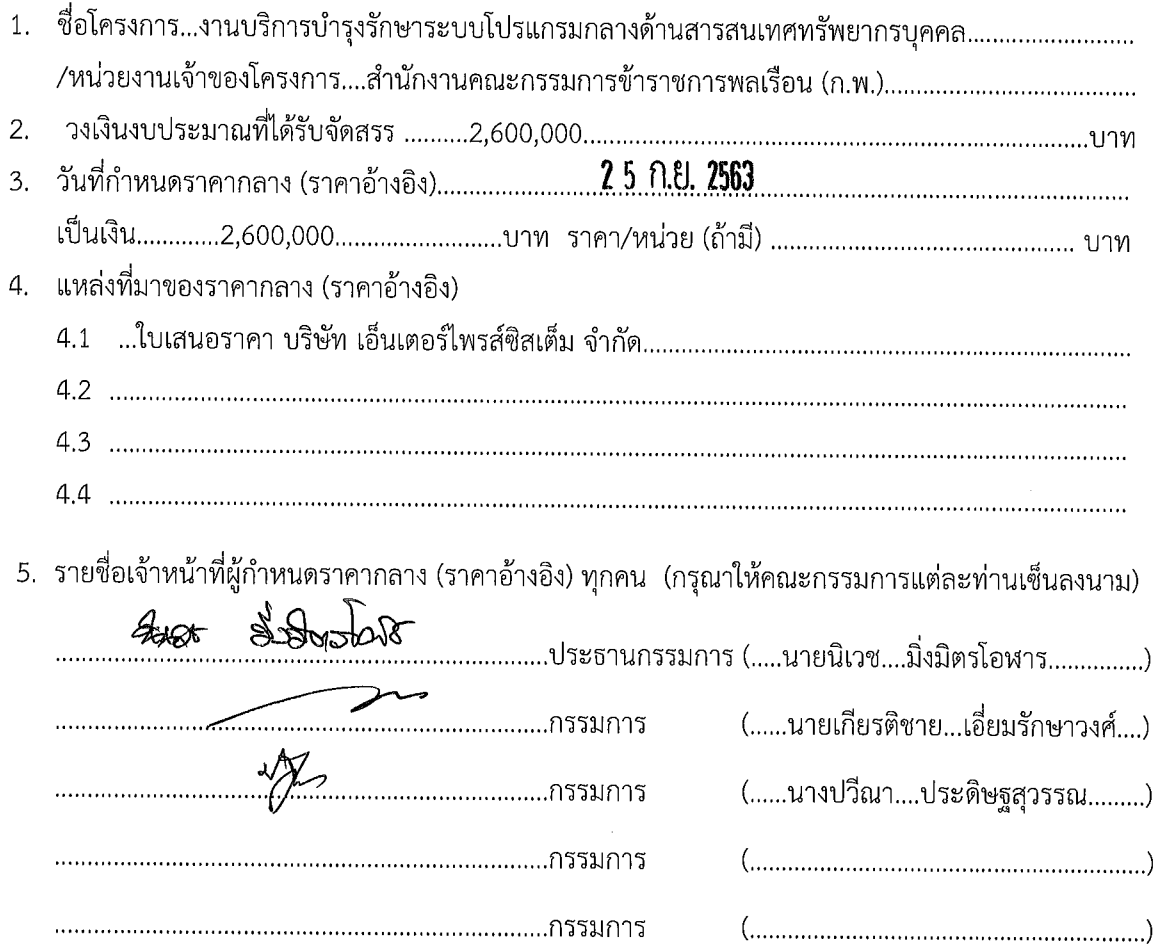 1. ชื่อโครงการ...งานบริการบำรุงรักษาระบบโปรแกรมกลางด้านสารสนเทศทรัพยากรบุคคล..........................
/หน่วยงานเจ้าของโครงการ....สำนักงานคณะกรรมการข้าราชการพลเรือน (ก.พ.).......................................
2. วงเงินงบประมาณที่ได้รับจัดสรร ..........2,600,000...............................................................................บาท
3. วันที่กำหนดราคากลาง (ราคาอ้างอิง).........................25 ก.ย. 2563..........................................................
เป็นเงิน.............2,600,000..........................บาท ราคา/หน่วย (ถ้ามี) ............................................... บาท
4. แหล่งที่มาของราคากลาง (ราคาอ้างอิง)
4.1 ...ใบเสนอราคา บริษัท เอ็นเตอร์ไพรส์ซิสเต็ม จำกัด............................................................................
4.2 ................................................................................................................................................
4.3 ................................................................................................................................................
4.4 ................................................................................................................................................
5. รายชื่อเจ้าหน้าที่ผู้กำหนดราคากลาง (ราคาอ้างอิง) ทุกคน (กรุณาให้คณะกรรมการแต่ละท่านเซ็นลงนาม)
............................................................................ประธานกรรมการ (.....นายนิเวช....มิ่งมิตรโอฬาร...............)
............................................................................กรรมการ (......นายเกียรติชาย...เอี่ยมรักษาวงศ์....)
............................................................................กรรมการ (......นางปวีณา....ประดิษฐสุวรรณ.........)
............................................................................กรรมการ (.............................................................)
............................................................................กรรมการ (.............................................................)